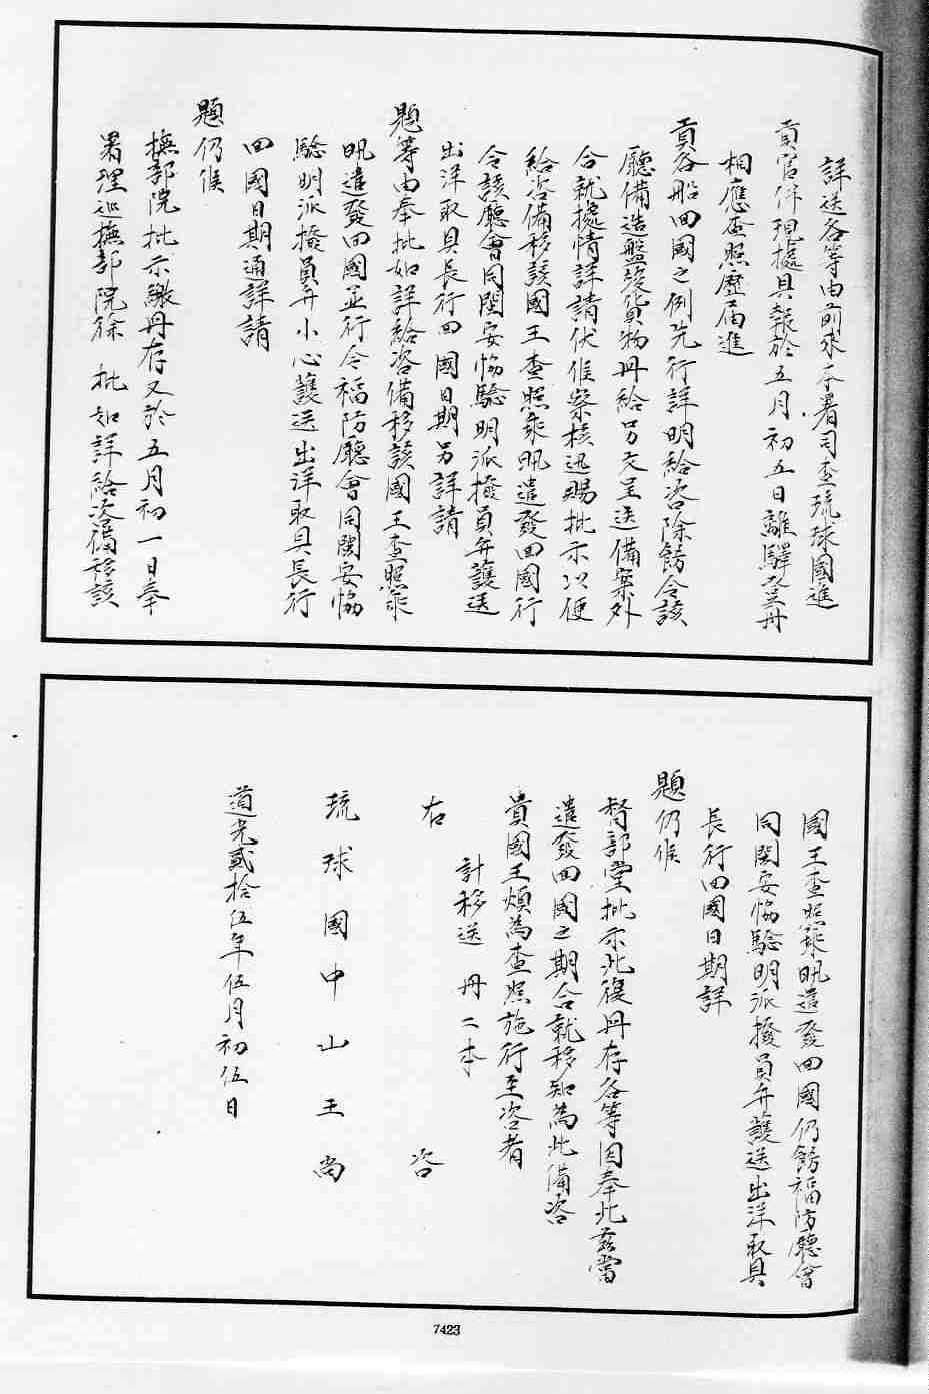 詳送各等由前來本署司查琉球國進
貢官伴現據具報於五月初五日離驛登舟
相應查照歷届進
貢各船回國之例先行詳明給咨除飭令該
廳備造盤驗貨物冊給另文呈送備案外
合就據情詳請伏候察核迅賜批示以便
給咨備移該國王查照來帆遣發回國行
令該廳會同閩安協驗明派撥員弁護送
出洋取具長行回國日期另詳請
題等由奉批如詳給咨備移該國王查照來
帆遣發回國並行令福防廳會同閩安協
驗明派撥員弁小心護送出洋取具長行
回國日期通詳請
題仍候
撫部院批示繳冊存又於五月初一日奉
署理巡撫部院徐 批如詳給咨備移該
國王查照來帆遣發回國仍飭福防廳會
同閩安協驗明派撥員弁護送出洋取具
長行回國日期詳
題仍候
督部堂批示此復冊存各等因奉此茲當
遣發回國之期合就移知為此備咨
貴國王煩為查照施行至咨者
計移送 冊二本
右 咨
琉球國中山王尚
道光貳拾伍年伍月初伍日
7423